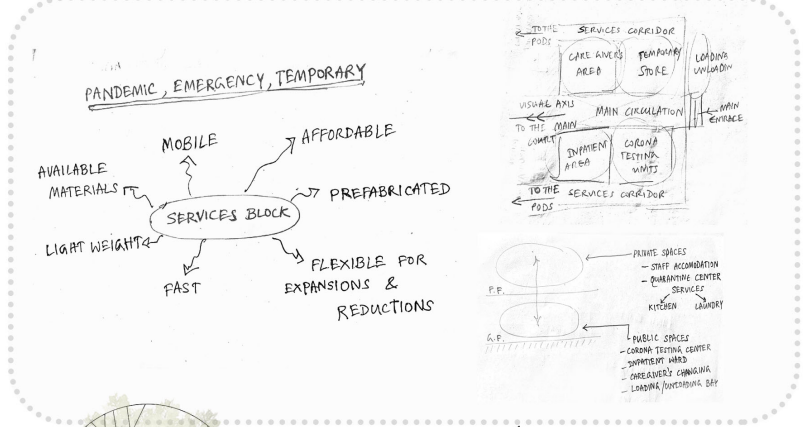 PANDEMIC, EMERGENCY, TEMPORARY
MOBILE
AFFORDABLE
AVAILABLE
MATERIALS
PREFABRICATED
SERVICES BLOCK
LIGHT WEIGHT
FAST
FLEXIBLE FOR
EXPANSIONS &
REDUCTIONS
TO THE
PODS
SERVICES CORRIDOR
CARE GIVER'S
AREA
TEMPORARY
STORE
LOADING
UNLOADIN
VISUAL AXIS
TO THE MAIN
COURT
MAIN CIRCULATION
MAIN
ENTRACE
INPATIENT
AREA
CORONA
TESTING
UNITS
TO THE
PODS
SERVICES CORRIDOR
F.F.
G.F.
PRIVATE SPACES
- STAFF ACCOMODATION
- QUARANTINE CENTER
SERVICES
KITCHEN
LAUNDRY
- PUBLIC SPACES
- CORONA TESTING CENTER
- INPATIENT WARD
- CAREGIVER'S CHANGING
- LOADING/UNLOADING BAY